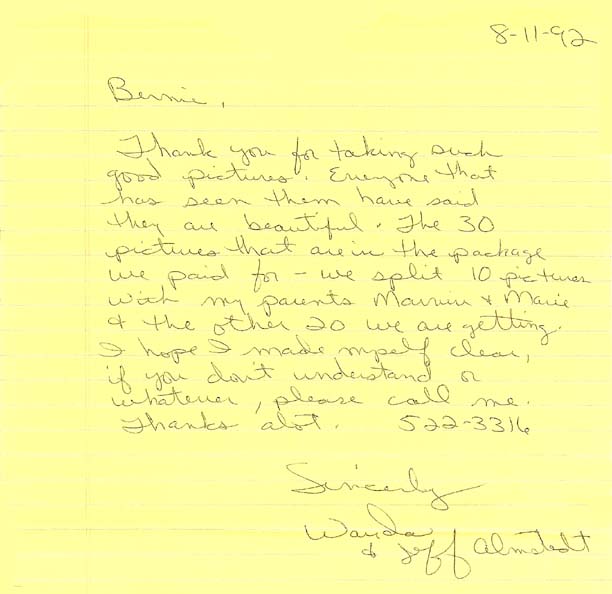 8-11-92
Bernie,
Thank you for taking such
good pictures. Everyone that
has seen them have said
they are beautiful. The 30
pictures that are in the package
we paid for - we split 10 pictures
with my parents Marvin & Marie
& the other 20 we are getting.
I hope I made myself clear,
if you don't understand or
whatever, please call me.
Thanks alot. 522-3316
Sincerly
Wanda
& Jeff Almstedt